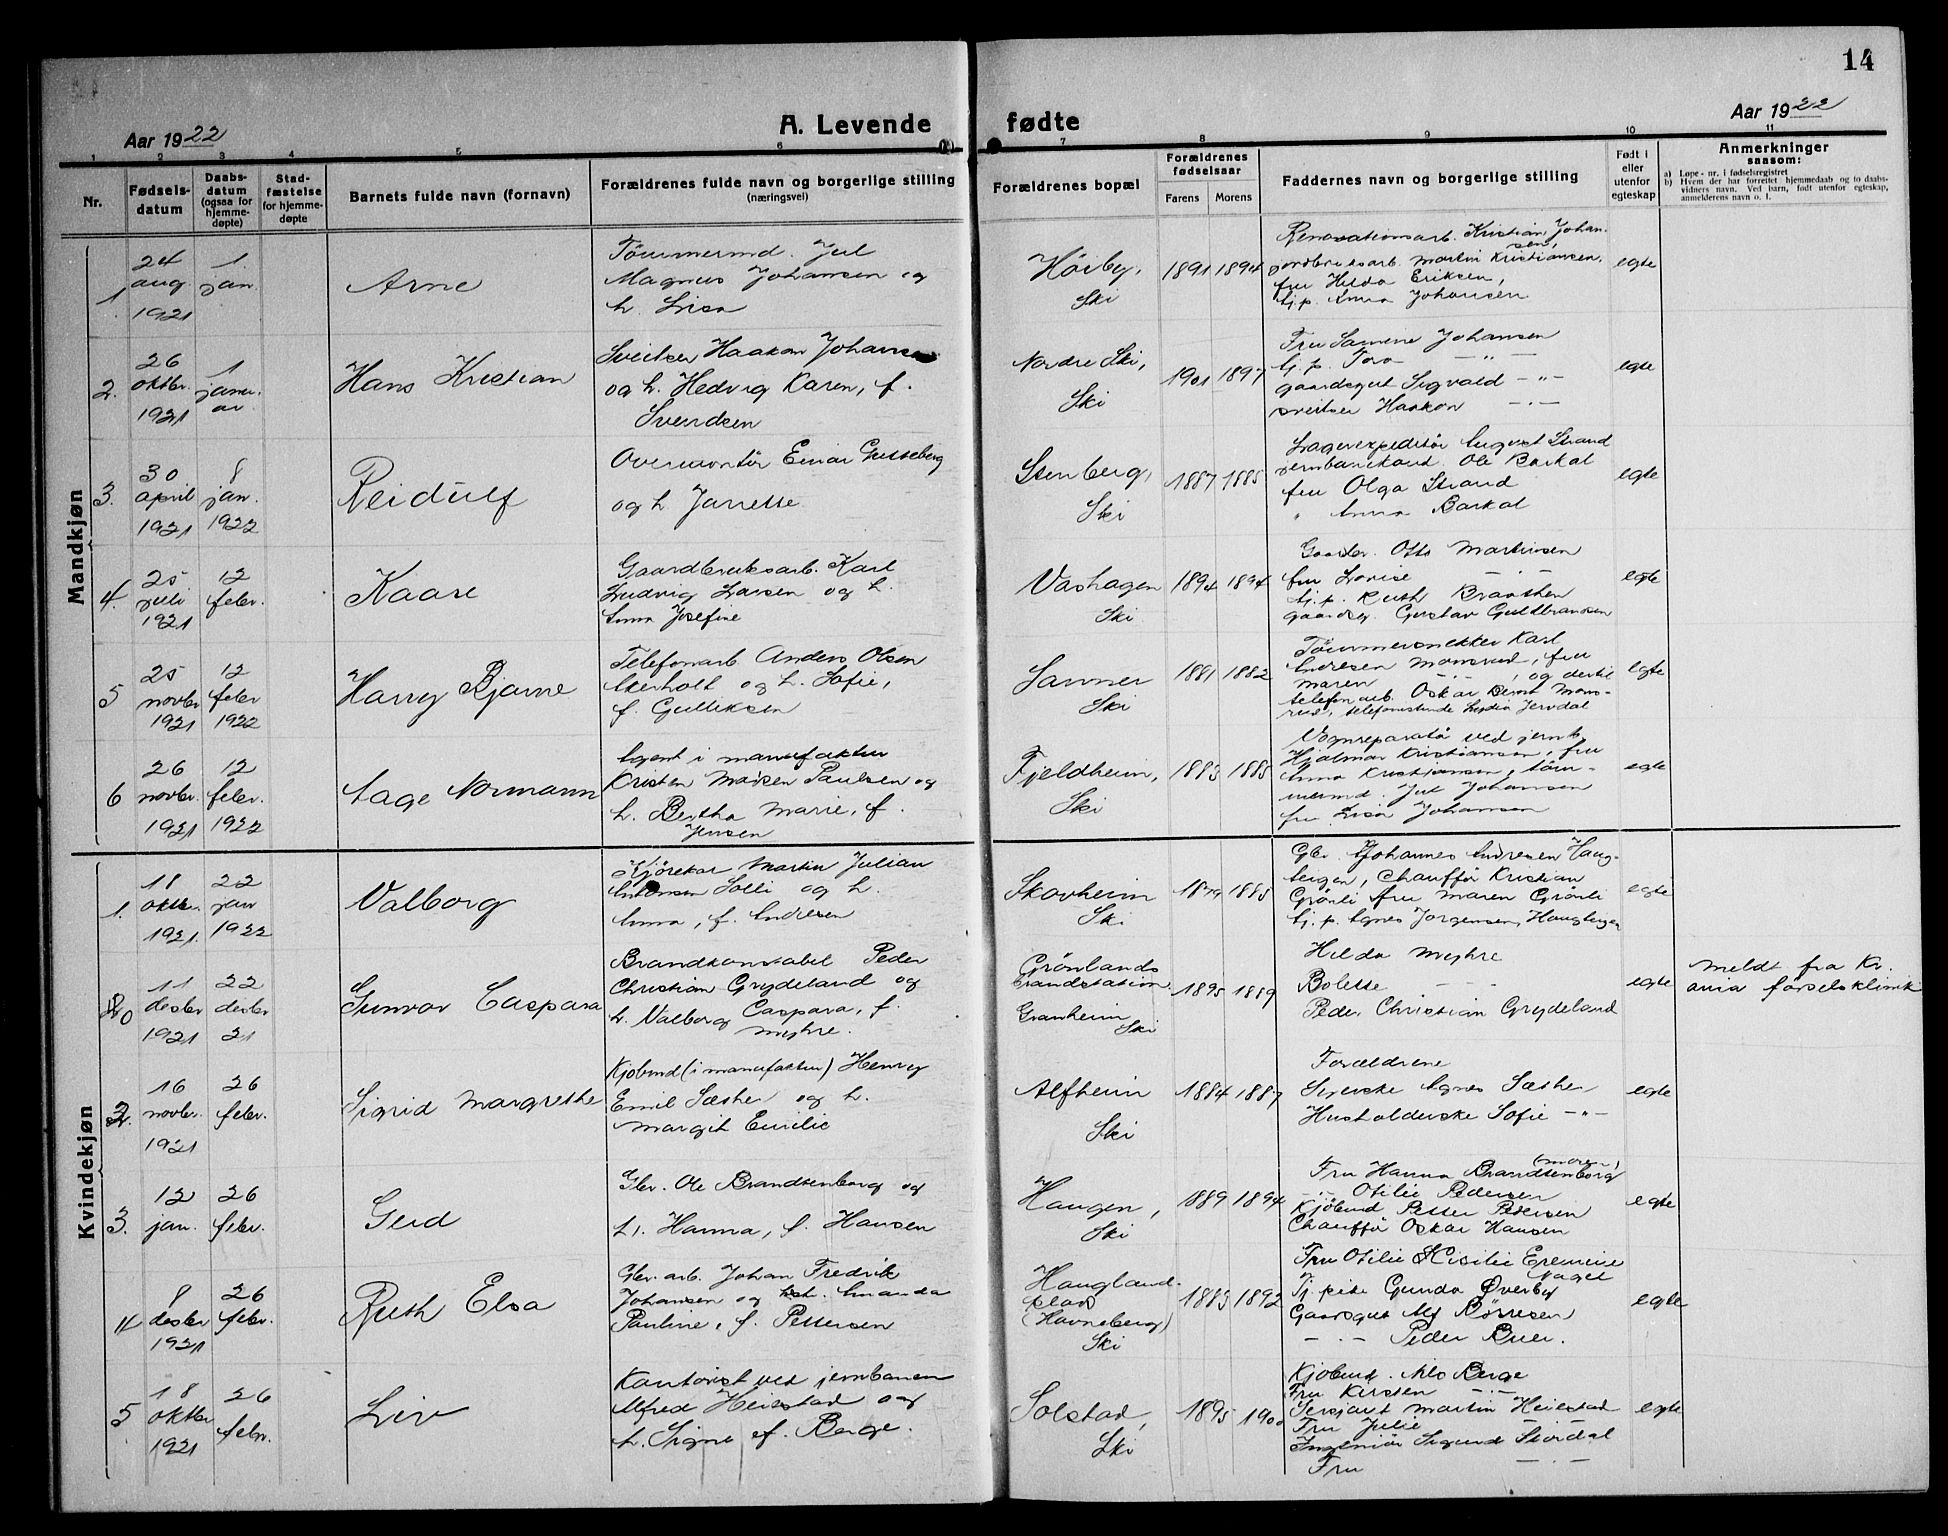 14
Aar 1922
A. Levende
fødte
Aar 1922
1 2 3 4 5 6 7 8 9 10 11
Nr.
Fødsels-
datum
Daabs-
datum
(ogsaa for
hjemme-
døpte)
Stad-
fæstelse
for hjemme-
døpte
Barnets fulde navn (fornavn)
Forældrenes fulde navn og borgerlige stilling
(næringsvei)
Forældrenes bopæl
Forældrenes
fødselsaar
Farens Morens
Faddernes navn og borgerlige stilling
Født i
eller
utenfor
egteskap
Anmerkninger
saasom:
a) Løpe - nr. i fødselsregistret
b) Hvem der har forrettet hjemmedaab og to daabs-
vidners navn. Ved barn, født utenfor egteskap,
anmelderens navn o. l.
Mandkjøn
1.
24
aug.
1921
1.
jan.
Arne
Tømmermd. Jul
Magnus Johansen og
h. Lisa
Høiby,
Ski
1891 1894
Renovationsarb. Kristian Johan-
sen,
jordbruksarb. Martin Kristiansen,
fru Hilda Eriksen,
tj.p. Anna Johansen
egte
2.
26
oktbr.
1921
1
janu-
ar.
Hans Kristian
Sveitser Haakon Johansen
og h. Hedvig Karen, f.
Svendsen
Nordre Ski,
Ski
1901 1897
Fru Samine Johansen
tj.p. Tora — " —
gaardsgut Sigvald — " —
sveitser Haakon — " —
egte
3.
30
april
1921
8
jan.
1922
Reidulf
Overmontør Einar
og h. Janette
Stenberg,
Ski
1887 1885
Lagerexpeditør August Strand
Ole Barkal
fru Olga Strand
" Anna Barkal
egte
4.
25
juli
1921
12
febr.
Kaare
Gaardbruksarb. Karl
Ludvig Larsen og h.
Anna Josefine
Vashagen
Ski
1894 1894
Otto Martinsen
fru Lovise — " —
tj.p. Ruth Braathen
Gustav Guldbransen
egte
5
25
novbr
1921
12
febr
1922
Harry Bjarne
Telefonarb. Anders Olsen
Akerholt og h. Sofie,
f. Gulliksen
Sanner
Ski
1881 1882
Tømmersnekker Karl
Andresen Monsrud, fru
Maren — " —, og dertil
telefon arb. Oskar Bernt Mons-
rud, telefonistinde Lydia
egte
6
26
novbr.
1921
12
febr.
1922
Aage Normann
Agent i manufaktur
Kristen Paulsen og
h. Bertha Marie, f.
Jensen
Fjeldheim,
Ski
1883 1885
Vognreparatør ved jernb.
Hjalmar Kristiansen, fru
Anna Kristiansen, tøm-
mermd. Jul Johansen
fru Lisa Johansen
egte
Kvindekjøn
1.
18
oktbr.
1921.
22
jan
1922
Valborg
Kjørekar Martin Julian
Antonsen Solli og h.
Anna, f. Andresen
Skovheim
Ski
1879 1885
Gbr. Johannes Andresen Haug-
tengen, Chauffør Kristian
Grønli fru Maren Grønli
tj.p. Agnes Jørgensen, Haugtengen
egte
11
desbr
1921
22
desbr
21
Gunvor Caspara
Brandkonstabel Peder
Christian Grydeland og
h. Valborg Caspara, f.
Myhre.
Grønlands
brandstation
Granheim
Ski
1895 1889
Hilda Myhre
Bolette — " —
Peder Christian Grydeland
egte
Meldt fra Kr.
ania førselsklinik
2.
16
novbr.
1921
26
febr.
Sigrid Margrethe
Kjøbmd (i manufaktur) Henry
Emil Sæther og h.
Margit Emilie
Alfheim
Ski
1884 1887
Forældrene
Syerske Agnes Sæther
Husholderske Sofie — " —
egte
3.
12
jan.
26
febr.
Gerd
Gbr. Ole Brandtenborg og
h. Hanna, f. Hansen
Haugen,
Ski
1889 1894
(moren)
Fru Hanna Brandtenborg
— " — Otilie Pedersen
Kjøbmd Petter Pedersen
Chauffør Oskar Hansen
egte
4
8
desbr
1921
26
febr.
Ruth Elsa
Gbr. arb. Johan Fredrik
Johansen og h. Amanda
Pauline, f. Pettersen
Haugland-
plads
(Havneberg)
Ski
1883 1892
Fru Otilie
Nagel
Tj. pike Gunda Øverby
Gaardsgut Alf Børresen
— " — Peder Buer.
egte
5
18
oktbr
1921
26
febr.
Liv
Kontorist ved jernbanen
Alfred Heiestad og
h. Signe f. Berge.
Solstad,
Ski
1895 1900
Kjøbmd. Nils Berge
Fru Kirsten — " —
Sersjant Martin Heiestad
Fru Julie
Ingeniør Sigurd Stordal
Fru — " —
egte